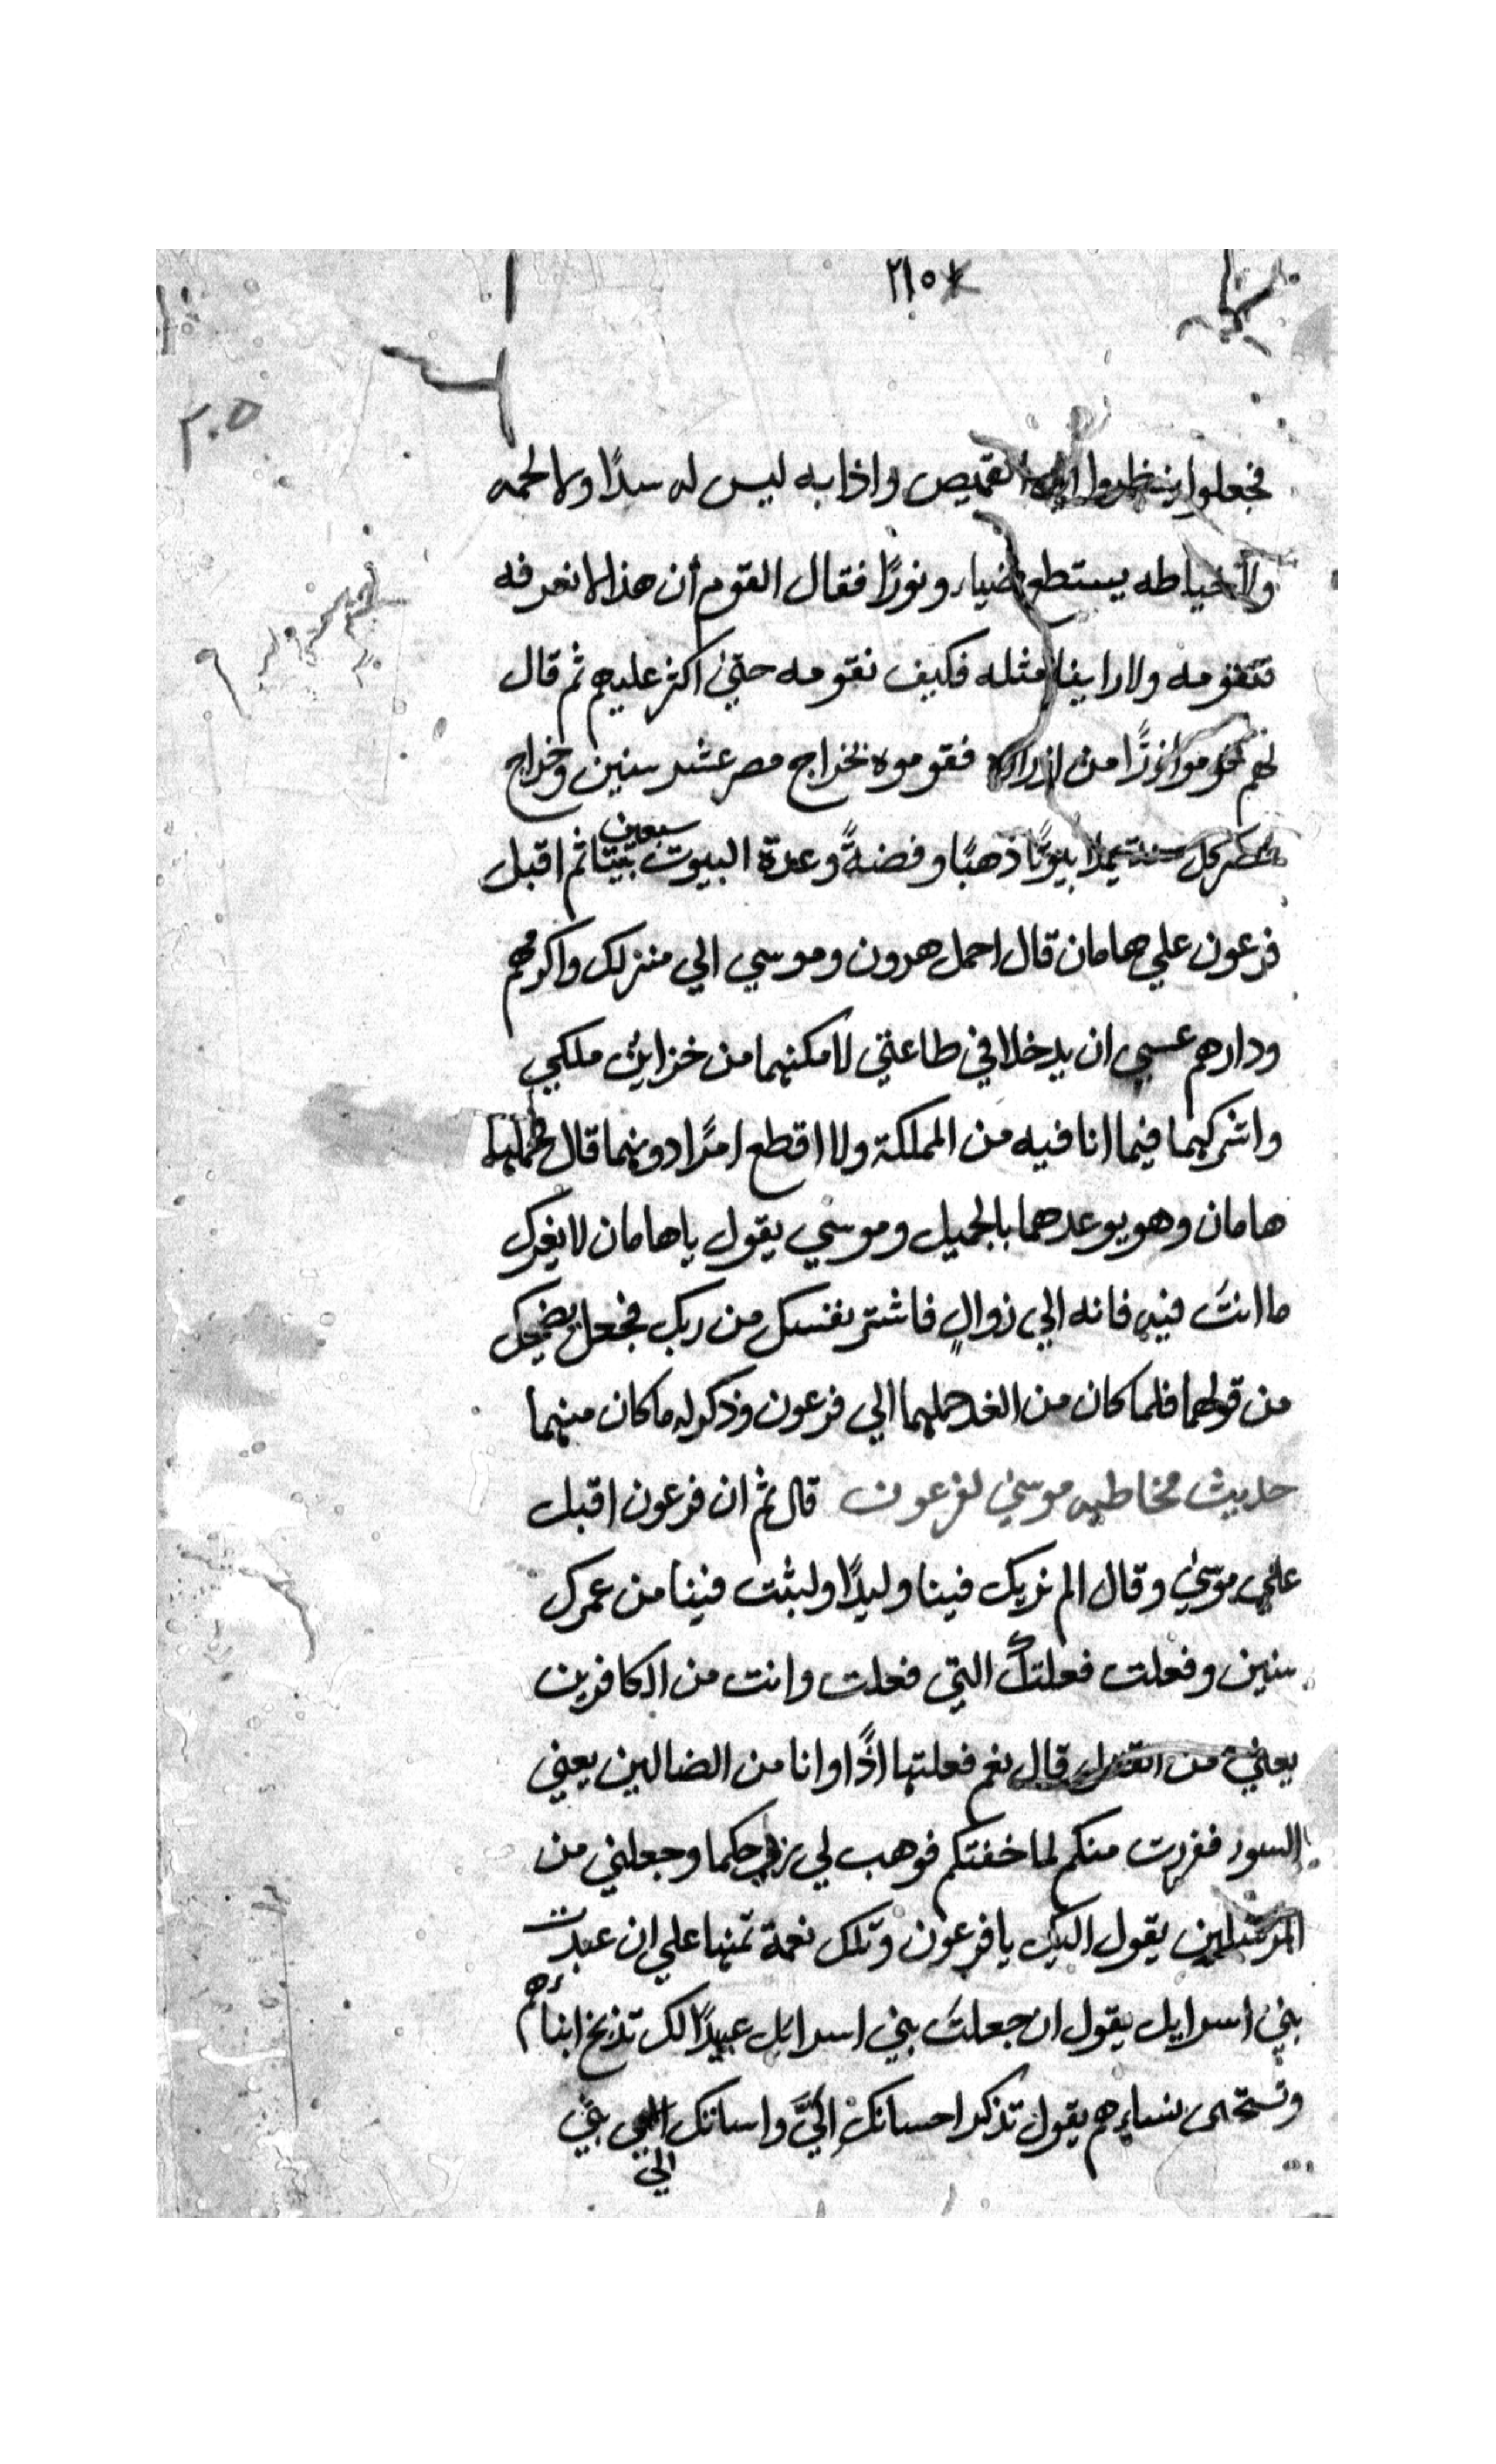 ٢١٥
٢٠٥
فجعلوا ينظروا الي القميص واذا به ليس له سدًا ولا لحمه
ولا خياطه يستطع ضياء ونورًا فقال القوم أن هذا لا نعرفه
فنقومه ولا راينا مثله فكيف نقومه حتي اكثر عليهم ثم قال
لهم قوموا زرًّا من ازراره فقوموه بخراج مصر عشر سنين وخراج
مصر كل سنة يملا بيوتًا ذهبًا وفضةً وعدة البيوت سبعين بيتا ثم اقبل
فرعون علي هامان قال احمل هرون وموسي الي منزلك واكرمهم
ودارهم عسي ان يدخلا في طاعتي لامكنهما من خزاين ملكي
واشركهما فيما انا فيه من المملكة ولا اقطع امرًا دونهما قال فحملهما
هامان وهو يوعدهما بالجميل وموسي يقول ياهامان لا يغرك
ما انتَ فيه فانه الي زوالٍ فاشتر نفسك من ربك فجعل يضحك
من قولهما فلما كان من الغد حملهما الي فرعون وذكر له ما كان منهما
حديث مخاطبه موسي لفرعون قال ثم ان فرعون اقبل
علي موسي وقال الم نربك فينا وليدًا ولبثت فينا من عمرك
سنين وفعلت فعلتك التي فعلت وانت من الكافرين
يعني من القتل قال نعم فعلتها اذًا وانا من الضالين يعني
ففررت منكم لما خفتكم فوهب لي ربي حكما وجعلني من
المرسلين يقول اليك يا فرعون وتلك نعمة تمنها علي ان عبدت
بني اسرايل يقول ان جعلتَ بني اسرايل عبيدًا لك تذبح ابناءهم
وتستحي نساءهم يقول تذكر احسانك اليَّ واساتك الي بني
الي